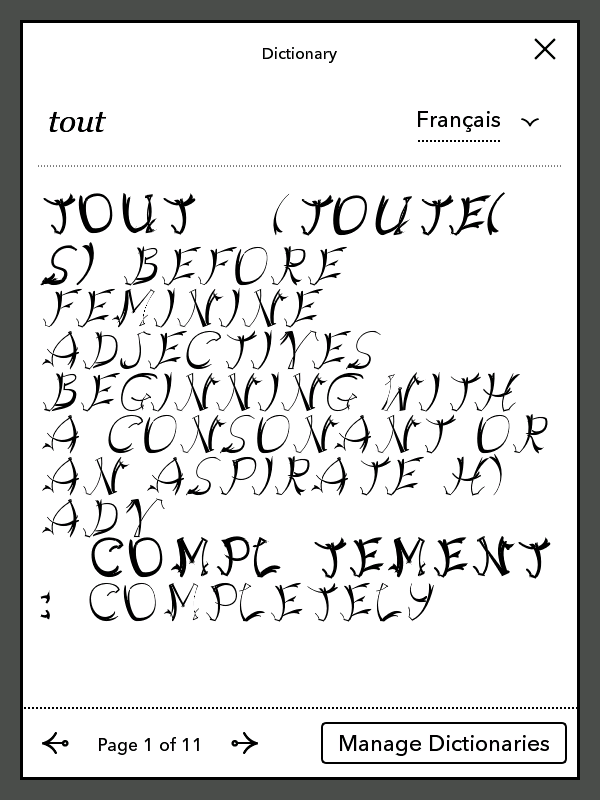 Dictionary
tout
Français
TOUT (TOUTE(
S) BEFORE
FEMININE
ADJECTIVES
BEGINNING WITH
A CONSONANT OR
AN ASPIRATE H)
ADV
COMPL TEMENT
: COMPLETELY
Page 1 of 11
Manage Dictionaries